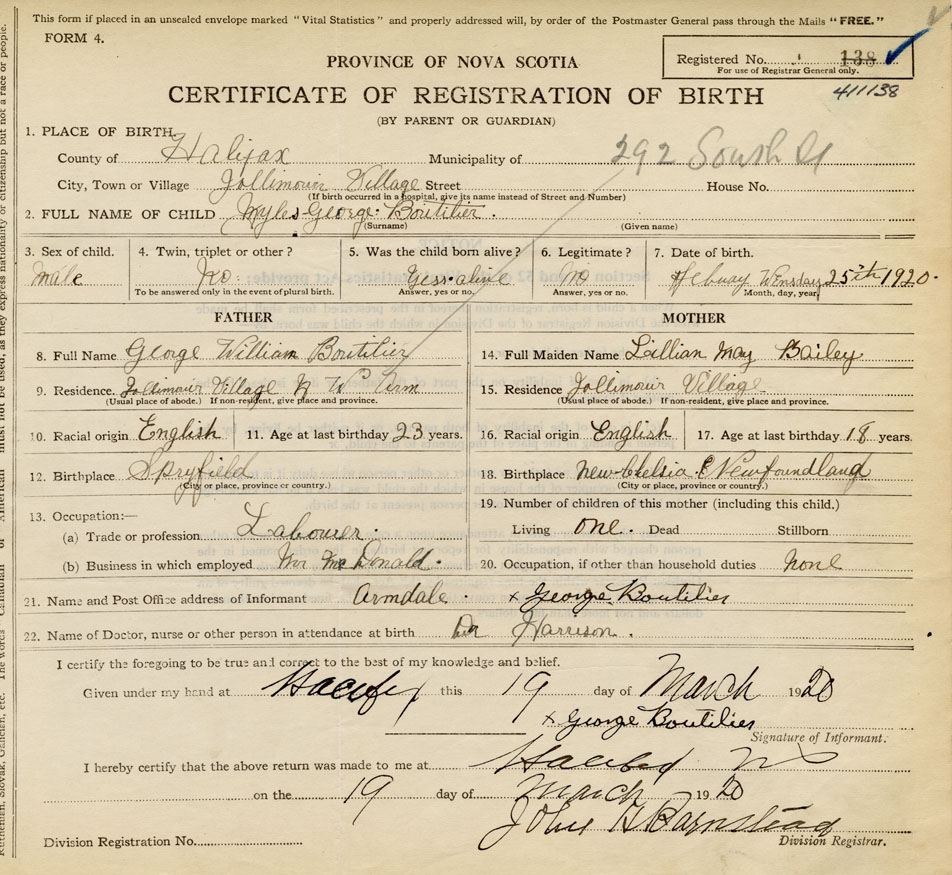 This form if placed in an unsealed envelope marked "Vital Statistics" and properly addressed will, by order of the Postmaster General pass through the Mails "FREE."
FORM 4.
PROVINCE OF NOVA SCOTIA
Registered No. 138
For use of Registrar General only.
411138
CERTIFICATE OF REGISTRATION OF BIRTH
(BY PARENT OR GUARDIAN)
1. PLACE OF BIRTH
County of Halifax Municipality of 292 South St
City, Town or Village Jollimour Village Street House No.
(If birth occurred in a hospital, give its name instead of Street and Number)
2. FULL NAME OF CHILD Myles George Boutilier.
(Surname) (Given name)
3. Sex of child. 4. Twin, triplet or other? 5. Was the child born alive? 6. Legitimate? 7. Date of birth.
male No. Yess alive no Febuay Wensday 25ith 1920
To be answered only in the event of plural birth. Answer, yes or no. Answer, yes or no. Month, day, year
FATHER MOTHER
8. Full Name George William Boutilier 14. Full Maiden Name Lillian May Bailey
9. Residence. Jollimour Village N W Arm 15. Residence Jollimour Village
(Usual place of abode.) If non-resident, give place and province. (Usual place of abode.) If non-resident, give place and province.
10. Racial origin English 11. Age at last birthday 23 years. 16. Racial origin English 17. Age at last birthday 18 years.
12. Birthplace Spryfield 18. Birthplace New Chelsia Newfoundland
(City or place, province or country.) (City or place, province or country.)
19. Number of children of this mother (including this child.)
13. Occupation:—
(a) Trade or profession Labourer. Living one. Dead Stillborn
(b) Business in which employed Mr McDonald. 20. Occupation, if other than household duties none
21. Name and Post Office address of Informant Armdale. x George Boutilier
22. Name of Doctor, nurse or other person in attendance at birth Dr Harrison.
I certify the foregoing to be true and correct to the best of my knowledge and belief.
Given under my hand at Halifax this 19 day of March 1920
x George Boutilier
Signature of Informant.
I hereby certify that the above return was made to me at Halifax NS
on the 19 day of March 1920
John H Barnstead
Division Registration No. Division Registrar.